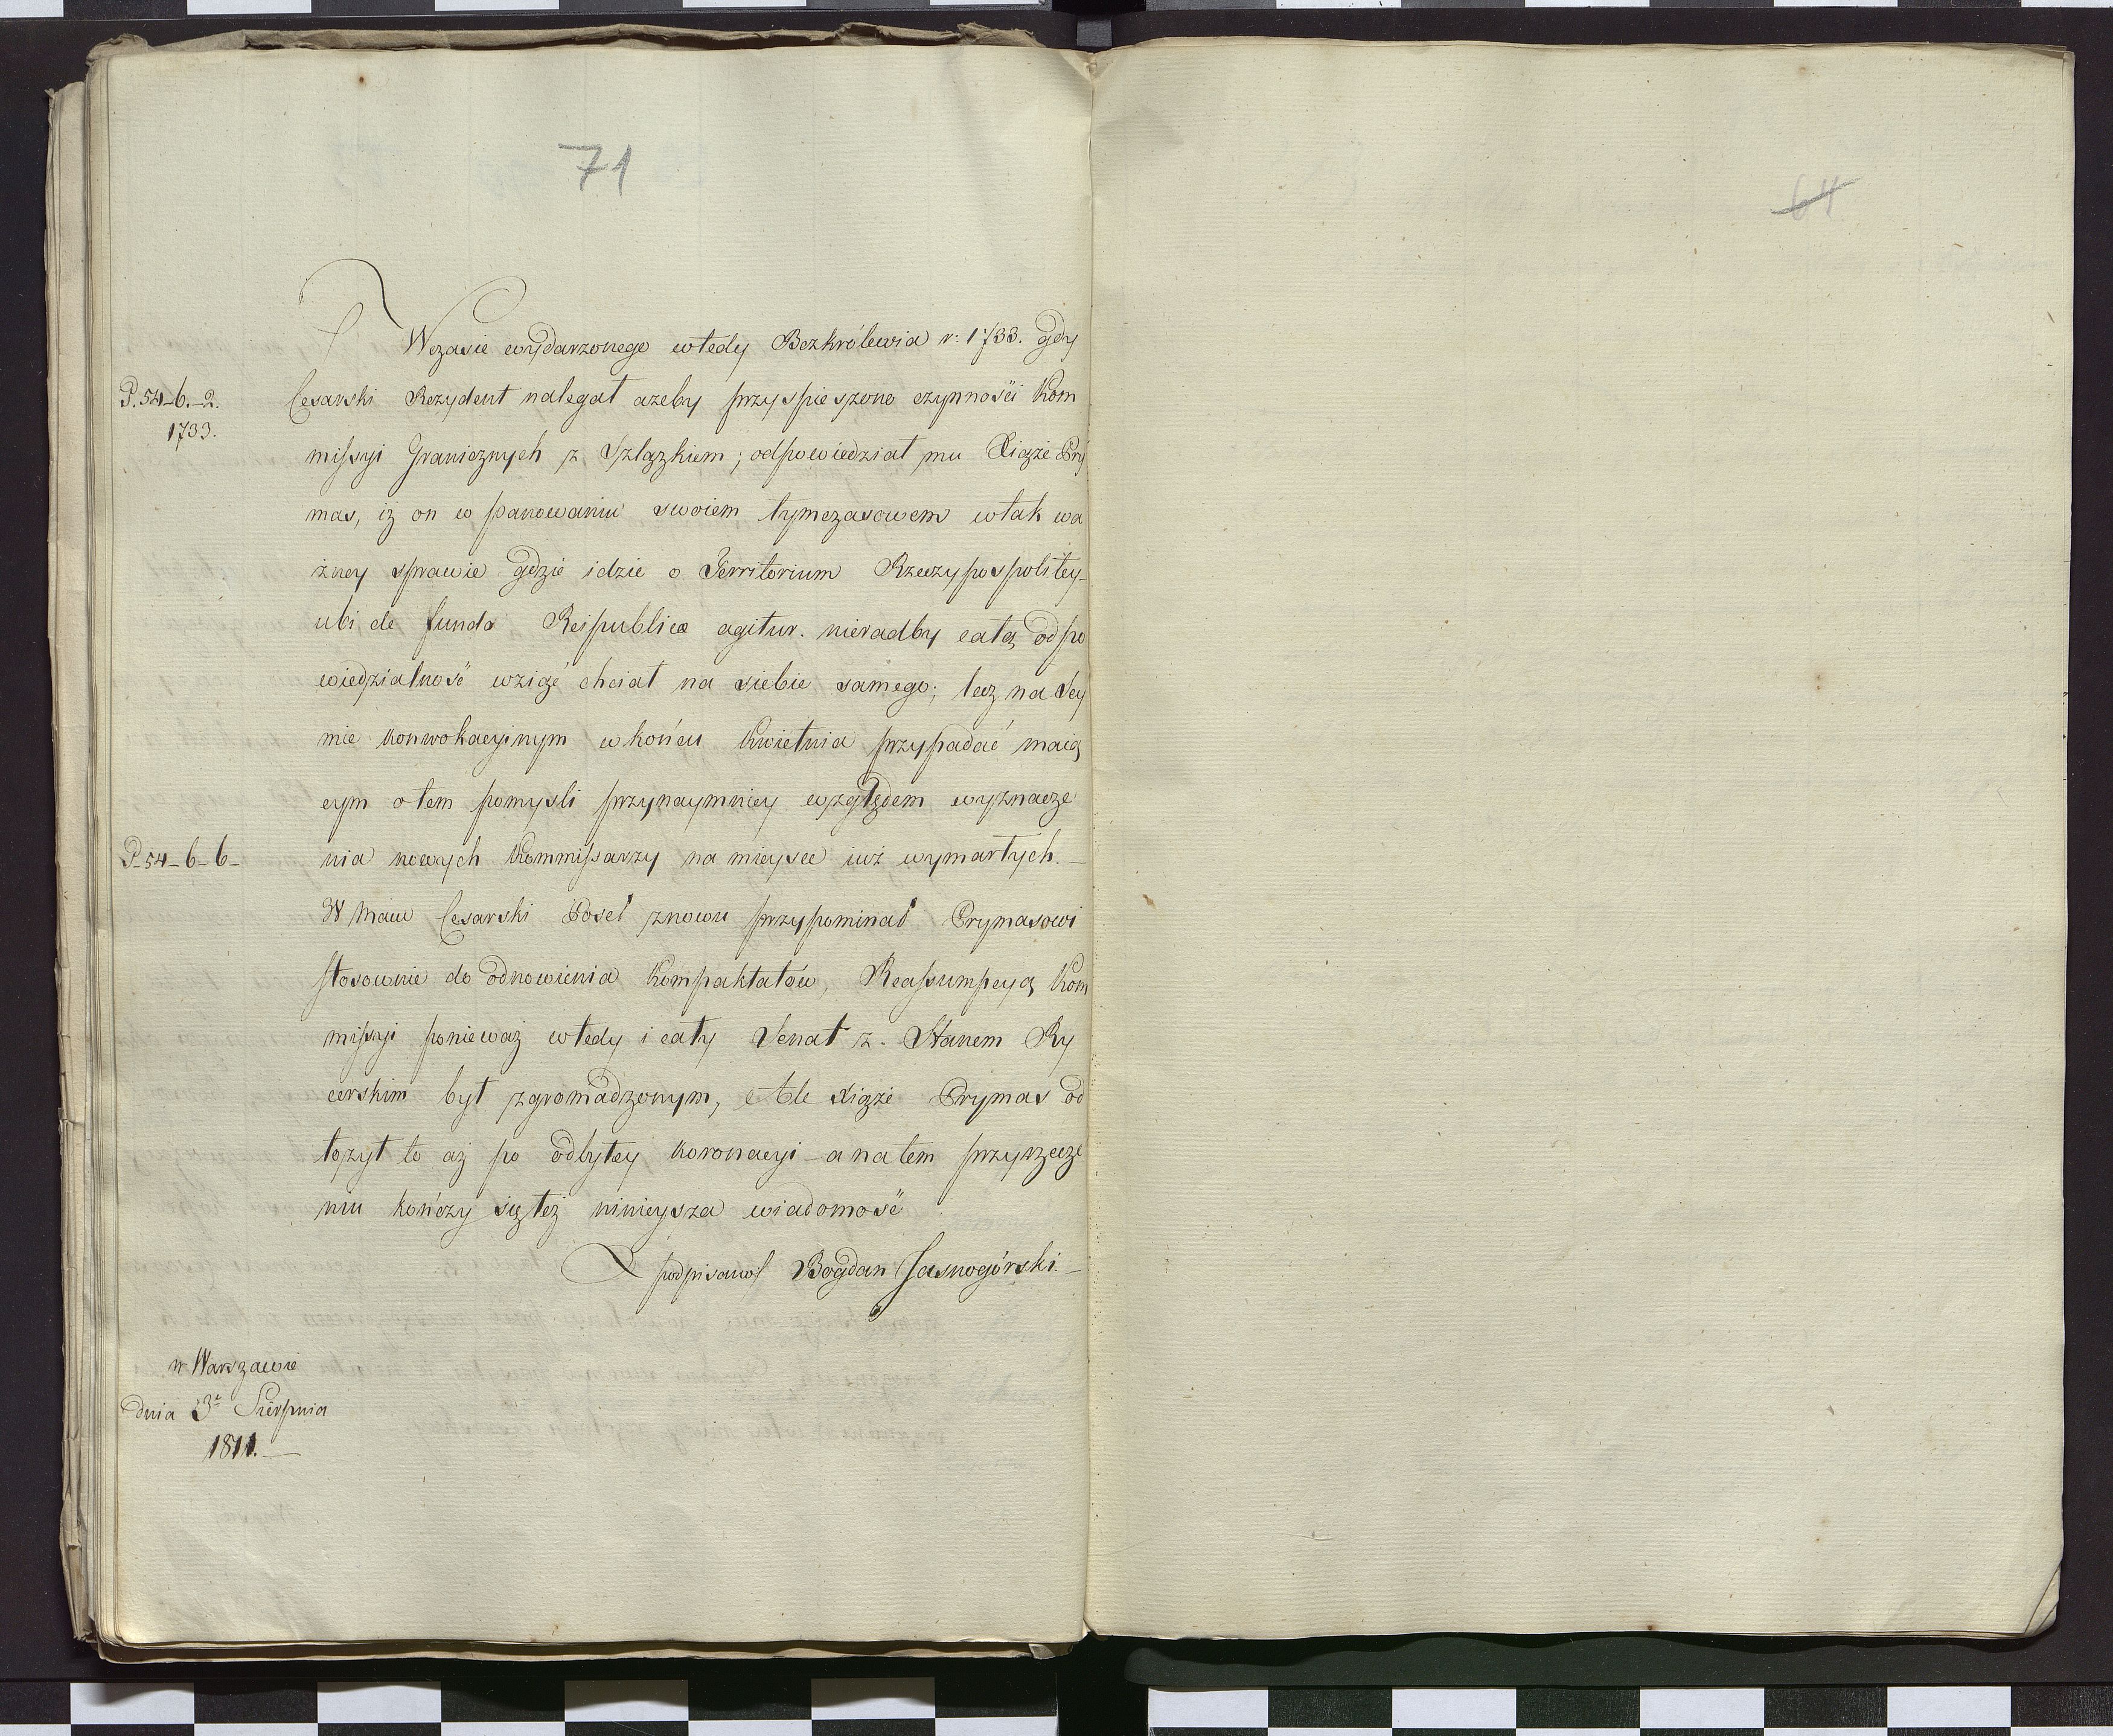 71
64
Wczasie wydarzonego wtedy Bezkrólewia r: 1733. gdy
P. 54-6.-2.
1733.
Cesarski Rezydent nalegał azeby przyspieszono czynności Kom
missyi Granicznych z Szlązkiem; odpowiedział mu Xiąże Pry
mas, iż on w panowaniu swoiem tymczasowem wtak wa
żney sprawie gdzie idzie o Territorium Rzeczypospolitey-
ubi de fundo Reipublicæ agitur. nieradby całą odpo
wiedzialność wziąć chciał na siebie samego; lecz na Sey
mie konwokacyinym wkońcu Kwietnia przypadać maią
cym otem pomysli przynaymniey względem wyznacze
P-54-6-6-
nia nowych Kommissarzy na mieysce iuż wymarłych.-
W Maiu Cesarski Poseł znowu przypominał Prymasowi
stosownie do odnowienia Kompaktatów, Reassumpcyą Kom
missyi ponieważ wtedy i cały Senat z. Stanem Ry
cerskim był zgromadzonym, Ale Xiąże Prymas od
łożył to aż po odbytey koronacyi-a natem przyrzecze
niu kończy się też ninieysza wiadomość
podpisano Bogdan Jasnogórski.-
w Warszawie
dnia 3º Sierpnia
1811.-